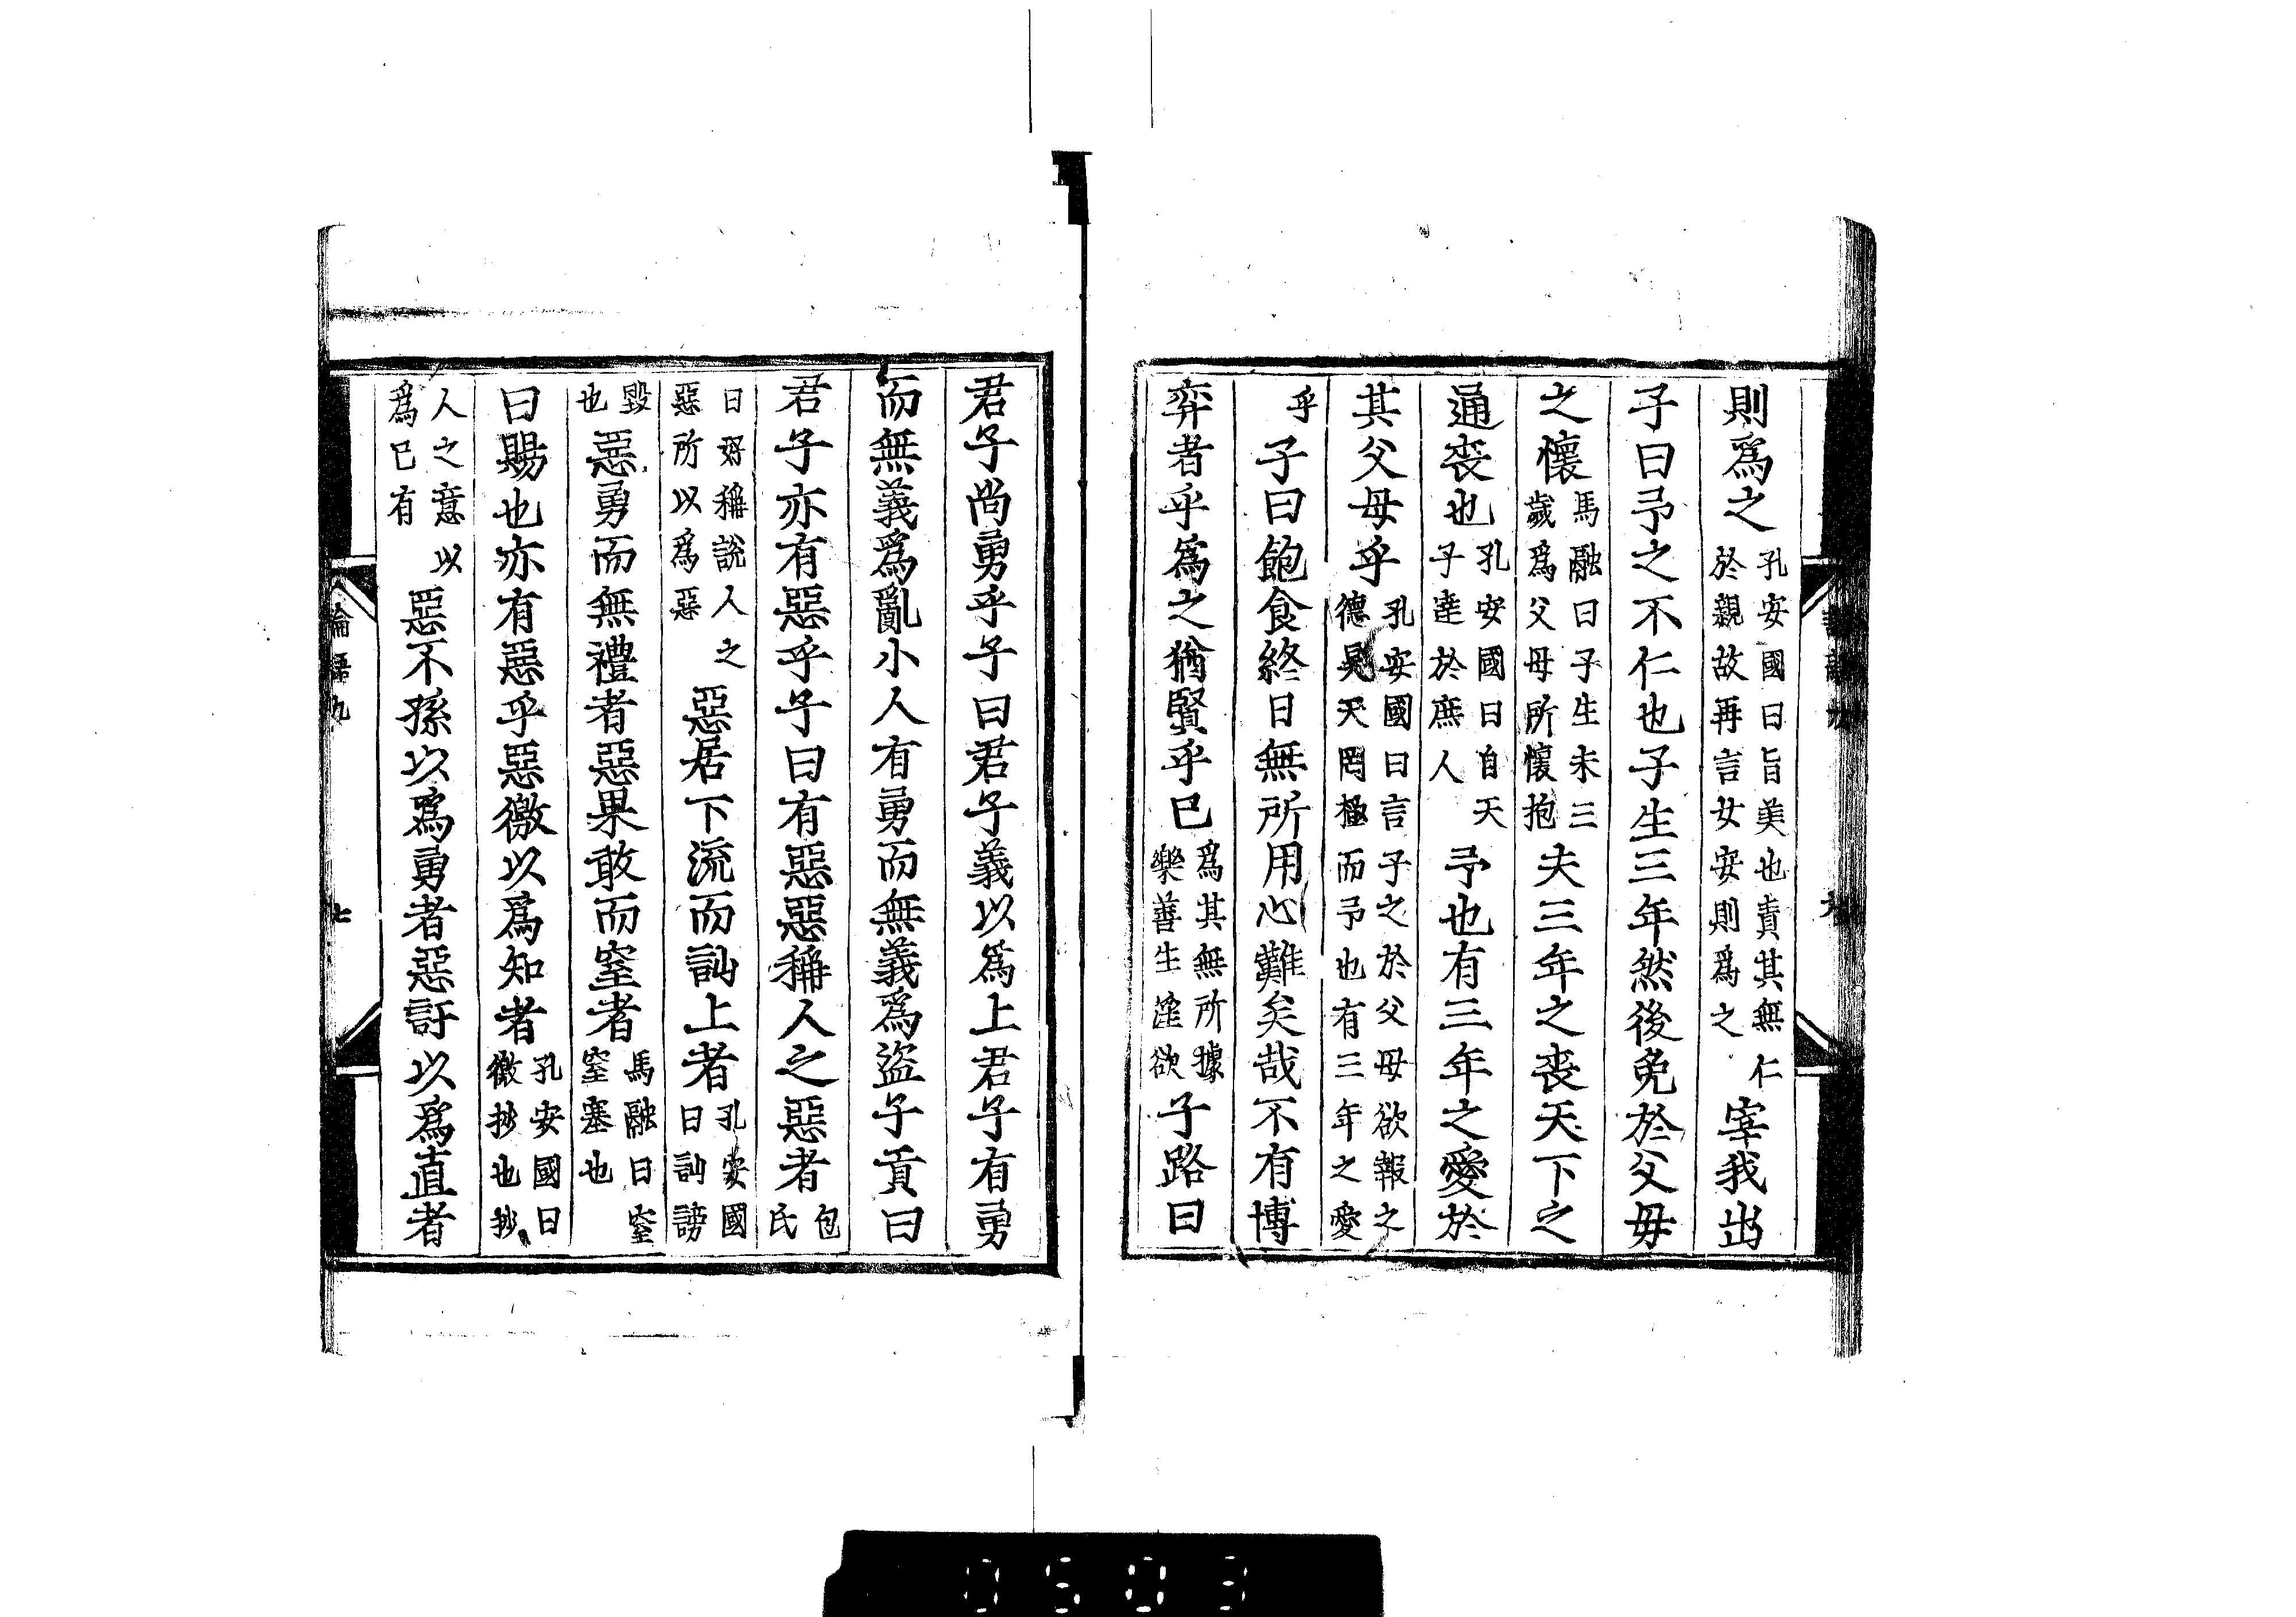 則爲之孔安國曰旨美也責其無仁於親故再言女安則爲之宰我出
子曰予之不仁也子生三年然後免於父毋
之懷馬融曰子生未三歲爲父母所懷抱夫三年之喪天下之
通喪也孔安國曰自天子達於庶人予也有三年之愛於
其父母乎孔安國曰言子之於父母欲報之德昊天罔極而予也有三年之愛
乎子曰飽食終日無所用心難矣哉不有博
弈者乎爲之猶賢乎已爲其無所據樂善生淫欲子路曰
君子尚勇乎子曰君子義以爲上君子有勇
而無義爲亂小人有勇而無義爲盜子貢曰
君子亦有惡乎子曰有惡惡稱人之惡者包氏
曰好稱說人之惡所以爲惡惡居下流而訕上者孔安國曰訕謗
毀也惡勇而無禮者惡果敢而窒者馬融曰窒窒塞也
曰賜也亦有惡乎惡徼以爲知者孔安國曰徼抄也抄
人之意以爲已有惡不孫以爲勇者惡訐以爲直者
論語九
七
0503